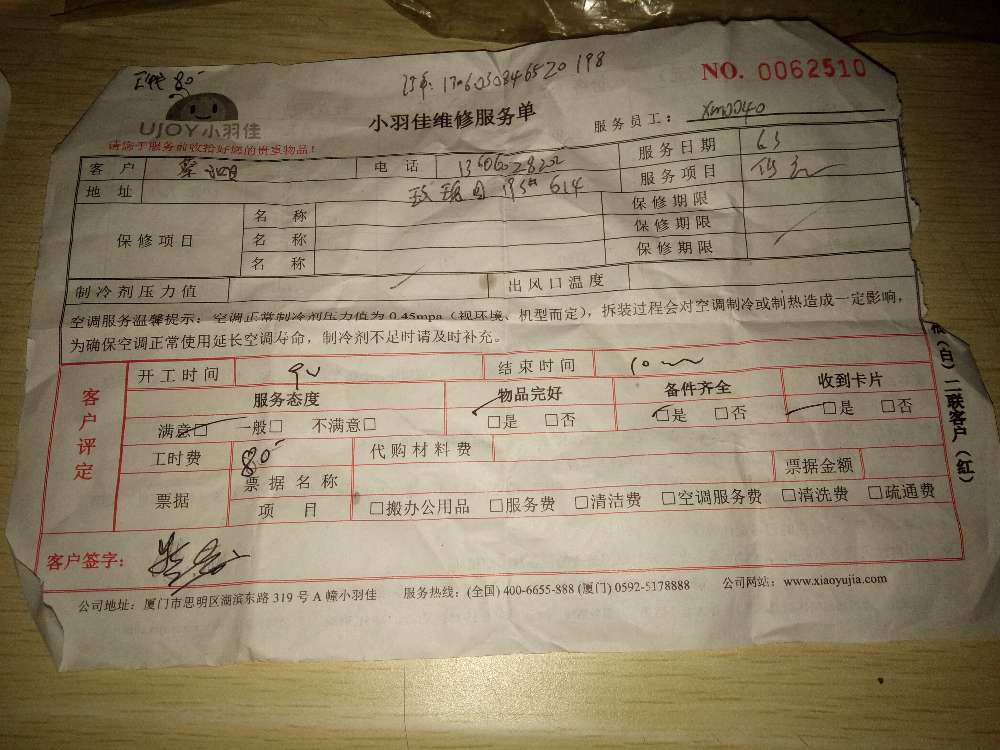 80
1706050846520198
NO. 0062510
UJOY小羽佳
小羽佳维修服务单
服务员工：
请您于服务前收拾好您的贵重物品！
客 户 电 话 服务日期
地 址 614 服务项目
保修项目 名 称 保修期限
名 称 保修期限
名 称 保修期限
制冷剂压力值 出风口温度
空调服务温馨提示：空调正常制冷剂压力值为 0.45mpa（视环境、机型而定），拆装过程会对空调制冷或制热造成一定影响，
为确保空调正常使用延长空调寿命，制冷剂不足时请及时补充。
（白）二联客户（红）
客户评定
开工时间 结束时间
服务态度 物品完好 备件齐全 收到卡片
满意□ 一般□ 不满意□ □是 □否 □是 □否 □是 □否
工时费 80 代购材料费
票据 票据名称 票据金额
项 目 □搬办公用品 □服务费 □清洁费 □空调服务费 □清洗费 □疏通费
客户签字：
公司地址：厦门市思明区湖滨东路 319 号 A 幢小羽佳 服务热线：(全国) 400-6655-888 (厦门) 0592-5178888 公司网站：www.xiaoyujia.com